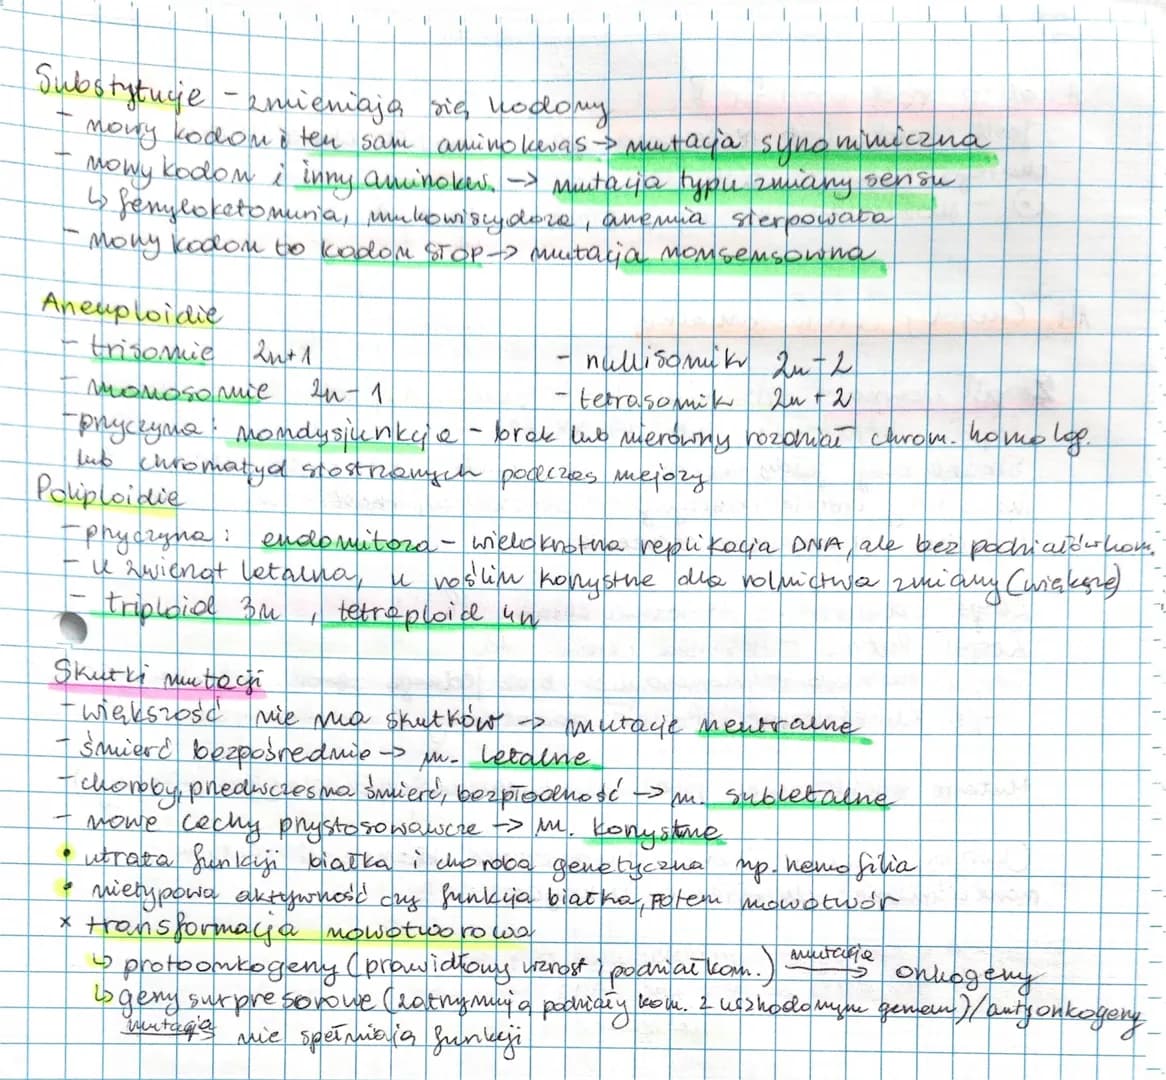 Substytucje - zmieniają się kodony
- nowy kodon i ten sam aminokwas → mutacja synonimiczna
- nowy kodon i inny aminokw. → mutacja typu zmiany sensu
↳ fenyloketonuria, mukowiscydoza, anemia sierpowata
- nowy kodon to kodon STOP → mutacja nonsensowna
Aneuploidie
- trisomie 2n+1
- nullisomik 2n-2
- monosomie 2n-1
- tetrasomik 2n+2
- przyczyna: nondysjunkcja - brak lub nierówny rozdział chrom. homolog.
lub chromatyd siostrzanych podczas mejozy
Poliploidie
- przyczyna: endomitoza - wielokrotna replikacja DNA, ale bez podziałów kom.
- u zwierząt letalna, u roślin korzystne dla rolnictwa zmiany (większe)
- triploid 3n, tetraploid 4n
Skutki mutacji
- większość nie ma skutków → mutacje neutralne
- śmierć bezpośrednio → m. letalne
- choroby, przedwczesna śmierć, bezpłodność → m. subletalne
- nowe cechy przystosowawcze → m. korzystne
• utrata funkcji białka i choroba genetyczna np. hemofilia
• nietypowa aktywność czy funkcja białka, potem nowotwór
x transformacja nowotworowa
↳ protoonkogeny (prawidłowy wzrost i podział kom.) mutacje → onkogeny
↳ geny supresorowe (zatrzymują podziały kom. z uszkodzonym genem) / antyonkogeny
mutacja → nie spełniają funkcji